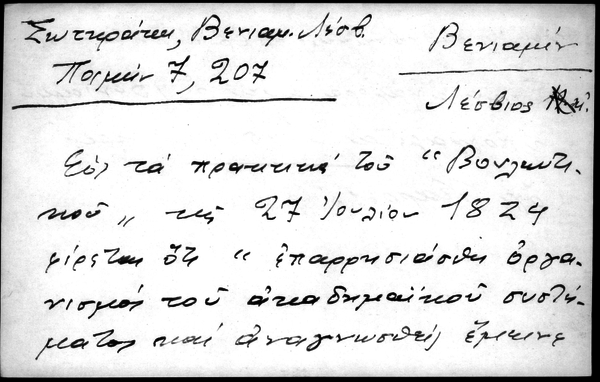 Σωτηράκη, Βενιαμ. Λέσβ.
Ποιμήν 7, 207
Βενιαμίν
Λέσβιος
Εἰς τά πρακτικά τοῦ "Βουλευτι-
κοῦ" τῆς 27 Ἰουλίου 1824
φέρεται ὅτι "ἐπαρρησιάσθη ὀργα-
νισμός τοῦ ἀκαδημαϊκοῦ συστή-
ματος καί ἀναγνωσθείς ἔμεινε